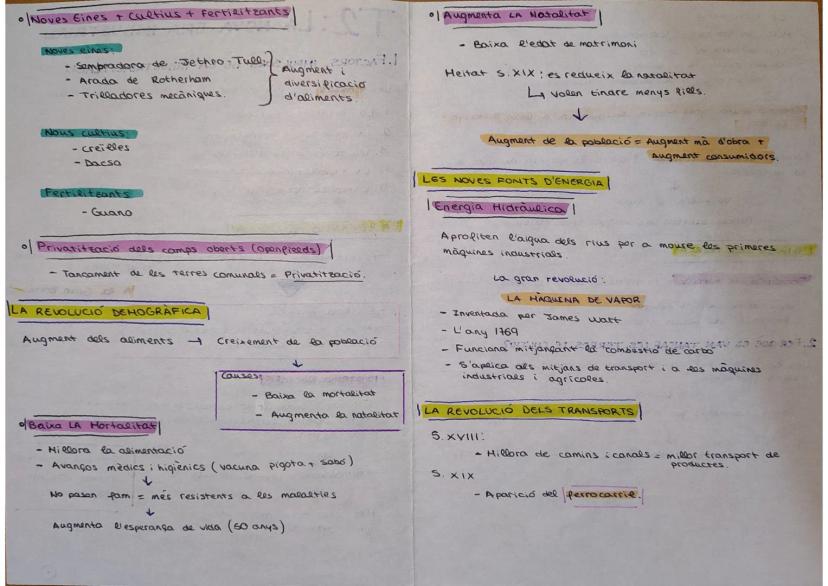 Noves Eines + Cultius + Fertilitzants
Noves eines:
- Sembradora de Jethro Tull.
- Arada de Rotherham
- Trilladores mecàniques.
Augment i
diversificació
d'aliments.
Nous cultius:
- Creïlles
- Dacsa
Fertilitzants
- Guano
Privatització dels camps oberts (openfields)
- Tancament de les terres comunals = Privatització.
LA REVOLUCIÓ DEMOGRÀFICA
Augment dels aliments → Creixement de la població
↓
Causes:
- Baixa la mortalitat
- Augmenta la natalitat
Baixa LA Mortalitat
- Millora la alimentació
- Avanços mèdics i higiènics (vacuna pigota + sabó)
↓
No pasen fam = més resistents a les malalties
↓
Augmenta l'esperança de vida (50 anys)
Augmenta LA Natalitat
- Baixa l'edat de matrimoni
Meitat S. XIX: es redueix la natalitat
↳ Volen tindre menys fills.
↓
Augment de la població = Augment mà d'obra +
Augment consumidors.
LES NOVES FONTS D'ENERGIA
Energia Hidràulica
Aprofiten l'aigua dels rius per a moure les primeres
màquines industrials
La gran revolució:
LA MÀQUINA DE VAPOR
- Inventada per James Watt
- L'any 1769
- Funciona mitjançant la combustió de carbó
- S'aplica als mitjans de transport i a les màquines
industrials i agrícoles.
LA REVOLUCIÓ DELS TRANSPORTS
S. XVIII:
- Millora de camins i canals = millor transport de
productes.
S. XIX
- Aparició del ferrocarril.